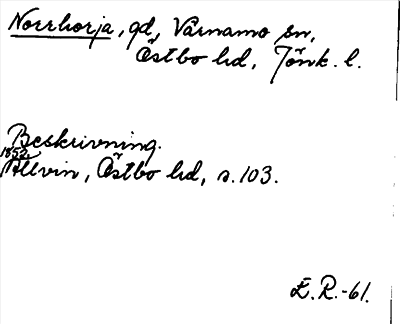 Norrhorja, gd, Värnamo sn,
Östbo hd, Jönk. l.
Beskrivning.
1852
Allvin, Östbo hd, s. 103.
E. R.-61.